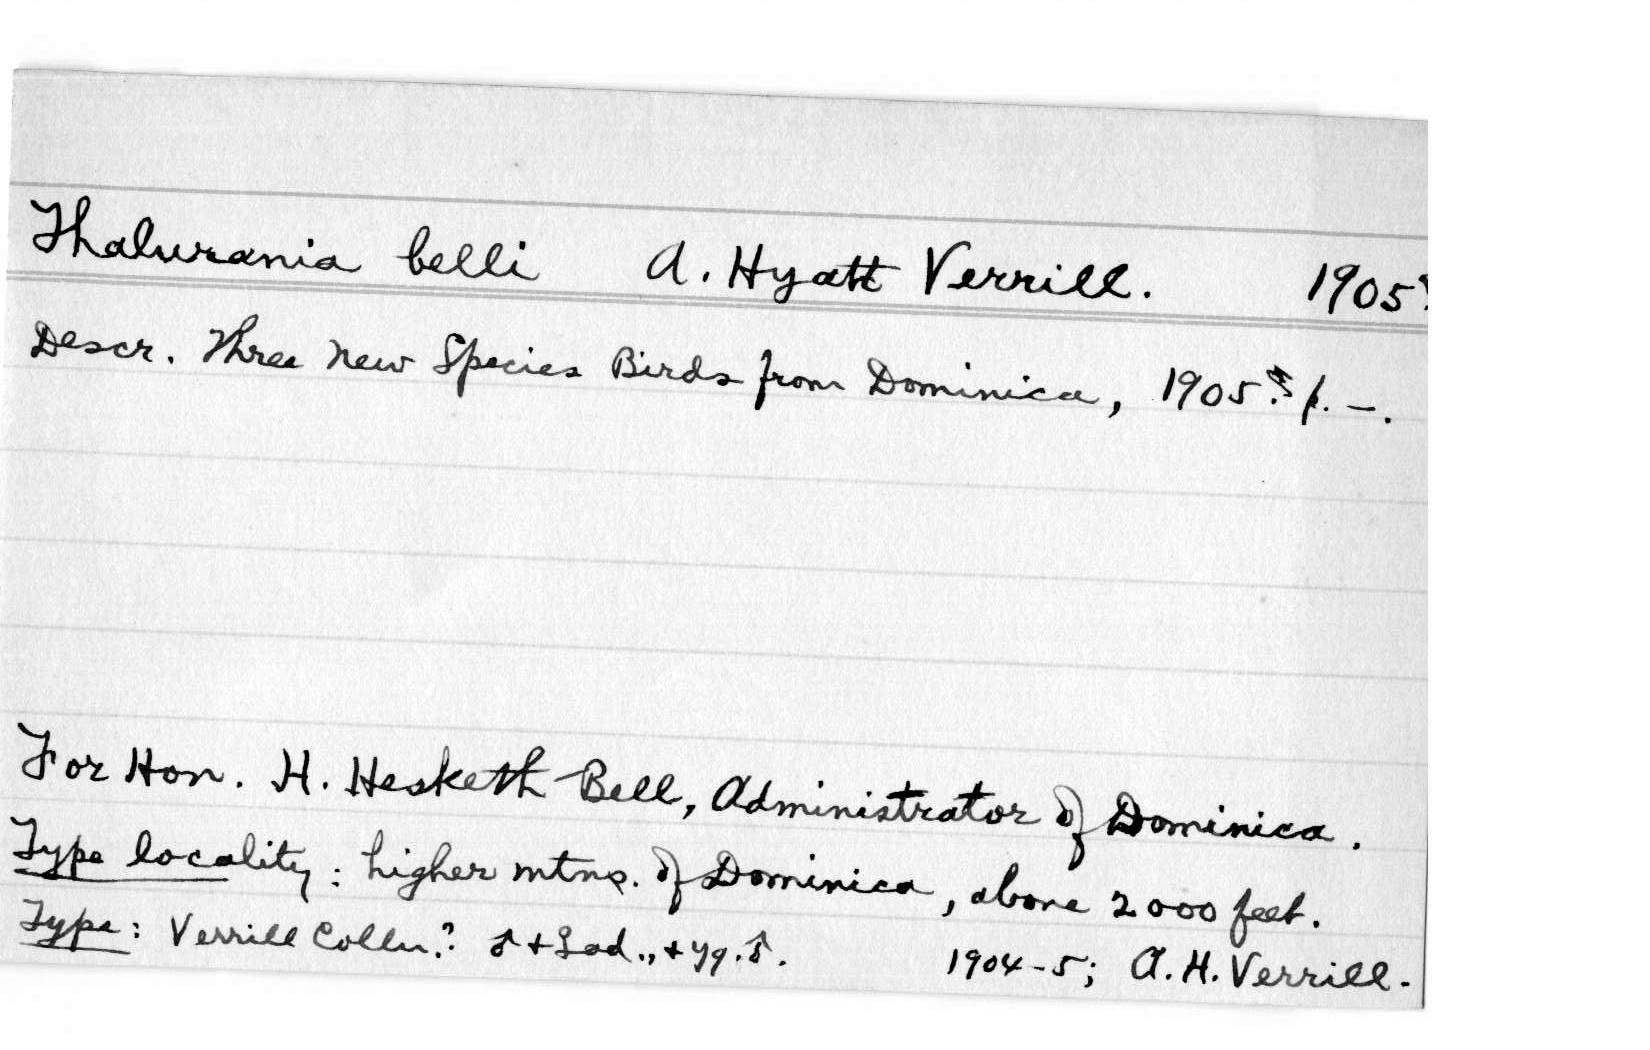 Thalurania belli A. Hyatt Verrill. 1905?
Descr. Three New Species Birds from Dominica, 1905? p. –.
For Hon. H. Hesketh Bell, Administrator of Dominica.
Type locality: higher mtns. of Dominica, above 2000 feet.
Type: Verrill Colln.? ♂ + ♀ ad., + yg. ♂. 1904-5; A. H. Verrill.